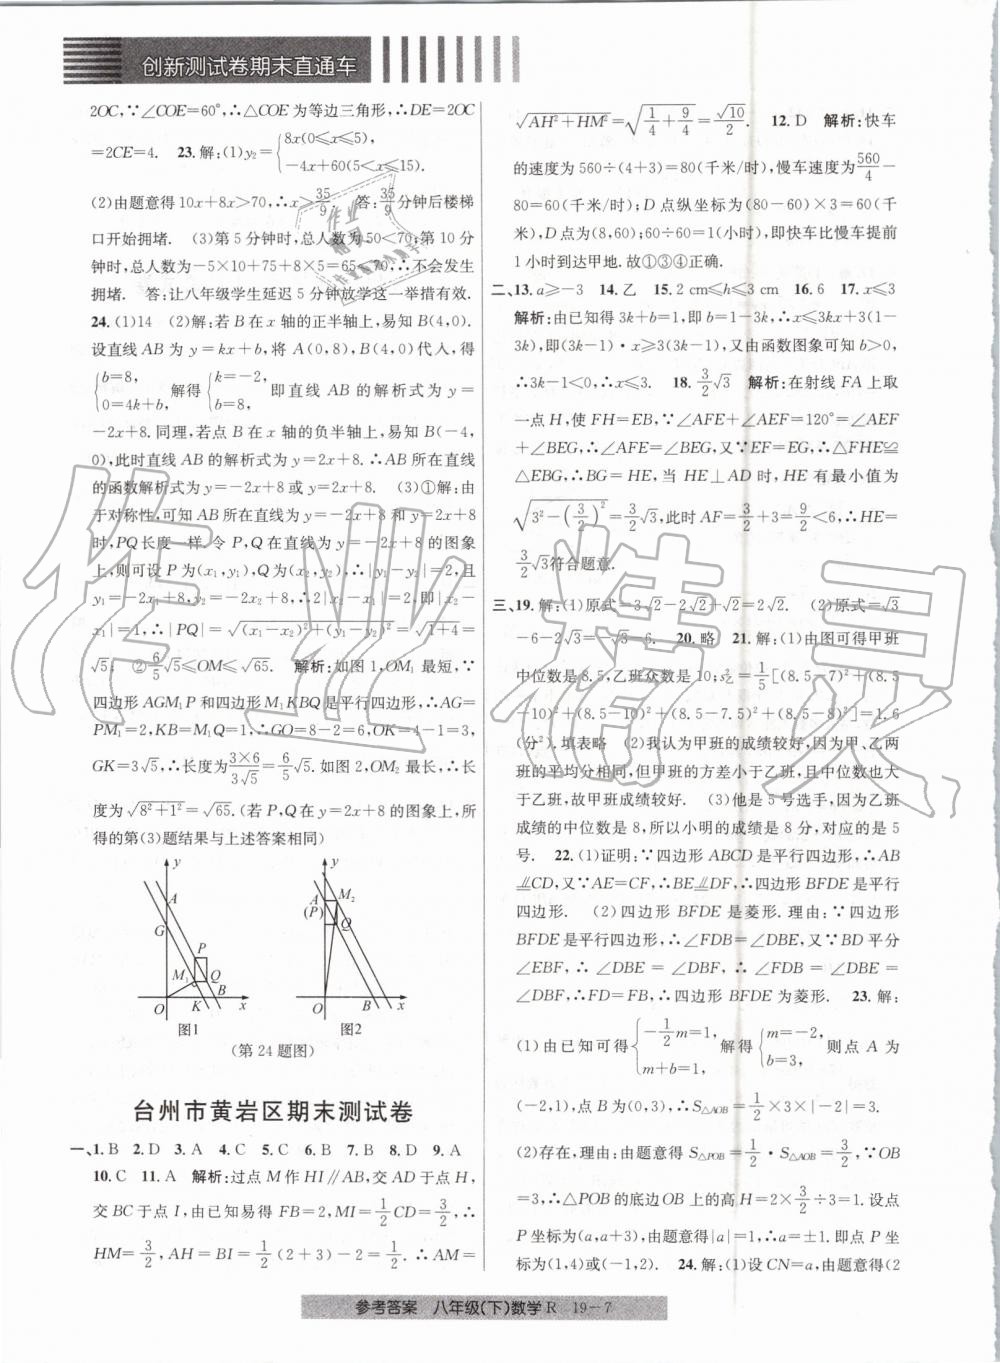 创新测试卷期末直通车
2OC,∵∠COE=60°,∴△COE为等边三角形,∴DE=2OC
=2CE=4. 23.解:(1)y₂={8x(0≤x≤5), −4x+60(5<x≤15).
(2)由题意得10x+8x>70,∴x>35/9. 答:35/9分钟后楼梯
口开始拥堵. (3)第5分钟时,总人数为50<70;第10分
钟时,总人数为−5×10+75+8×5=65<70,不会发生
拥堵. 答:让八年级学生延迟5分钟放学这一举措有效.
24.(1)14 (2)解:若B在x轴的正半轴上,易知B(4,0).
设直线AB为y=kx+b,将A(0,8),B(4,0)代入,得
{b=8, 0=4k+b, 解得{k=−2, b=8, 即直线AB的解析式为y=
−2x+8.同理,若点B在x轴的负半轴上,易知B(−4,
0),此时直线AB的解析式为y=2x+8.∴AB所在直线
的函数解析式为y=−2x+8或y=2x+8. (3)①解:由
于对称性,可知AB所在直线为y=−2x+8和y=2x+8
时,PQ长度一样.令P,Q在直线为y=−2x+8的图象
上,则可设P为(x₁,y₁),Q为(x₂,y₂),∴|y₁−y₂|=2,且
y₁=−2x₁+8,y₂=−2x₂+8,∴2|x₂−x₁|=2,即|x₂−
x₁|=1,∴|PQ|=√((x₁−x₂)²+(y₁−y₂)²)=√(1+4)=
√5. ②6/5√5≤OM≤√65. 解析:如图1,OM₁最短,∵
四边形AGM₁P和四边形M₁KBQ是平行四边形,∴AG=
PM₁=2,KB=M₁Q=1,∴GO=8−2=6,OK=4−1=3,
GK=3√5,∴长度为3×6/3√5=6/5√5. 如图2,OM₂最长,∴长
度为√(8²+1²)=√65.(若P,Q在y=2x+8的图象上,所
得的第(3)题结果与上述答案相同)
y A G P M₁ Q O K B x
图1
y A (P) M₂ Q O B x
图2
(第24题图)
台州市黄岩区期末测试卷
一、1.B 2.D 3.A 4.C 5.C 6.B 7.B 8.D 9.A
10.C 11.A 解析:过点M作HI∥AB,交AD于点H,
交BC于点I,由已知易得FB=2,MI=1/2CD=3/2,∴
HM=3/2,AH=BI=1/2(2+3)−2=1/2. ∴AM=
√(AH²+HM²)=√(1/4+9/4)=√10/2. 12.D 解析:快车
的速度为560÷(4+3)=80(千米/时),慢车速度为560/4−
80=60(千米/时);D点纵坐标为(80−60)×3=60(千
米),D点为(8,60);60÷60=1(小时),即快车比慢车提前
1小时到达甲地.故①③④正确.
二、13.a≥−3 14.乙 15.2 cm≤h≤3 cm 16.6 17.x≤3
解析:由已知得3k+b=1,即b=1−3k;∴x≤3kx+3(1−
3k),∴(3k−1)·x≥3(3k−1),又由函数图象可知b>0,
∴3k−1<0,∴x≤3. 18.3/2√3 解析:在射线FA上取
一点H,使FH=EB,∵∠AFE+∠AEF=120°=∠AEF
+∠BEG,∴∠AFE=∠BEG,又∵EF=EG,∴△FHE≌
△EBG,∴BG=HE,当HE⊥AD时,HE有最小值为
√(3²−(3/2)²)=3/2√3,此时AF=3/2+3=9/2<6,∴HE=
3/2√3符合题意.
三、19.解:(1)原式=3√2−2√2+√2=2√2. (2)原式=√3
−6−2√3=−√3−6. 20.略 21.解:(1)由图可得甲班
中位数是8.5,乙班众数是10;s²乙=1/5[(8.5−7)²+(8.5
−10)²+(8.5−10)²+(8.5−7.5)²+(8.5−8)²]=1.6
(分²).填表略 (2)我认为甲班的成绩较好,因为甲、乙两
班的平均分相同,但甲班的方差小于乙班,且中位数也大
于乙班,故甲班成绩较好. (3)他是5号选手,因为乙班
成绩的中位数是8,所以小明的成绩是8分,对应的是5
号. 22.(1)证明:∵四边形ABCD是平行四边形,∴AB
⫽CD,又∵AE=CF,∴BE⫽DF,∴四边形BFDE是平行
四边形. (2)四边形BFDE是菱形.理由:∵四边形
BFDE是平行四边形,∴∠FDB=∠DBE,又∵BD平分
∠EBF,∴∠DBE=∠DBF,∴∠FDB=∠DBE=
∠DBF,∴FD=FB,∴四边形BFDE为菱形. 23.解:
(1)由已知可得{−1/2m=1, m+b=1, 解得{m=−2, b=3, 则点A为
(−2,1),点B为(0,3),∴S△AOB=1/2×3×|−2|=3.
(2)存在,由题意得S△POB=1/2·S△AOB=3/2,∵OB
=3,∴△POB的底边OB上的高H=2×3/2÷3=1.设点
P坐标为(a,a+3),由题意得|a|=1,∴a=±1.即点P坐
标为(1,4)或(−1,2). 24.解:(1)设CN=a,由题得(2
参考答案 八年级(下)数学R 19−7
作业精灵